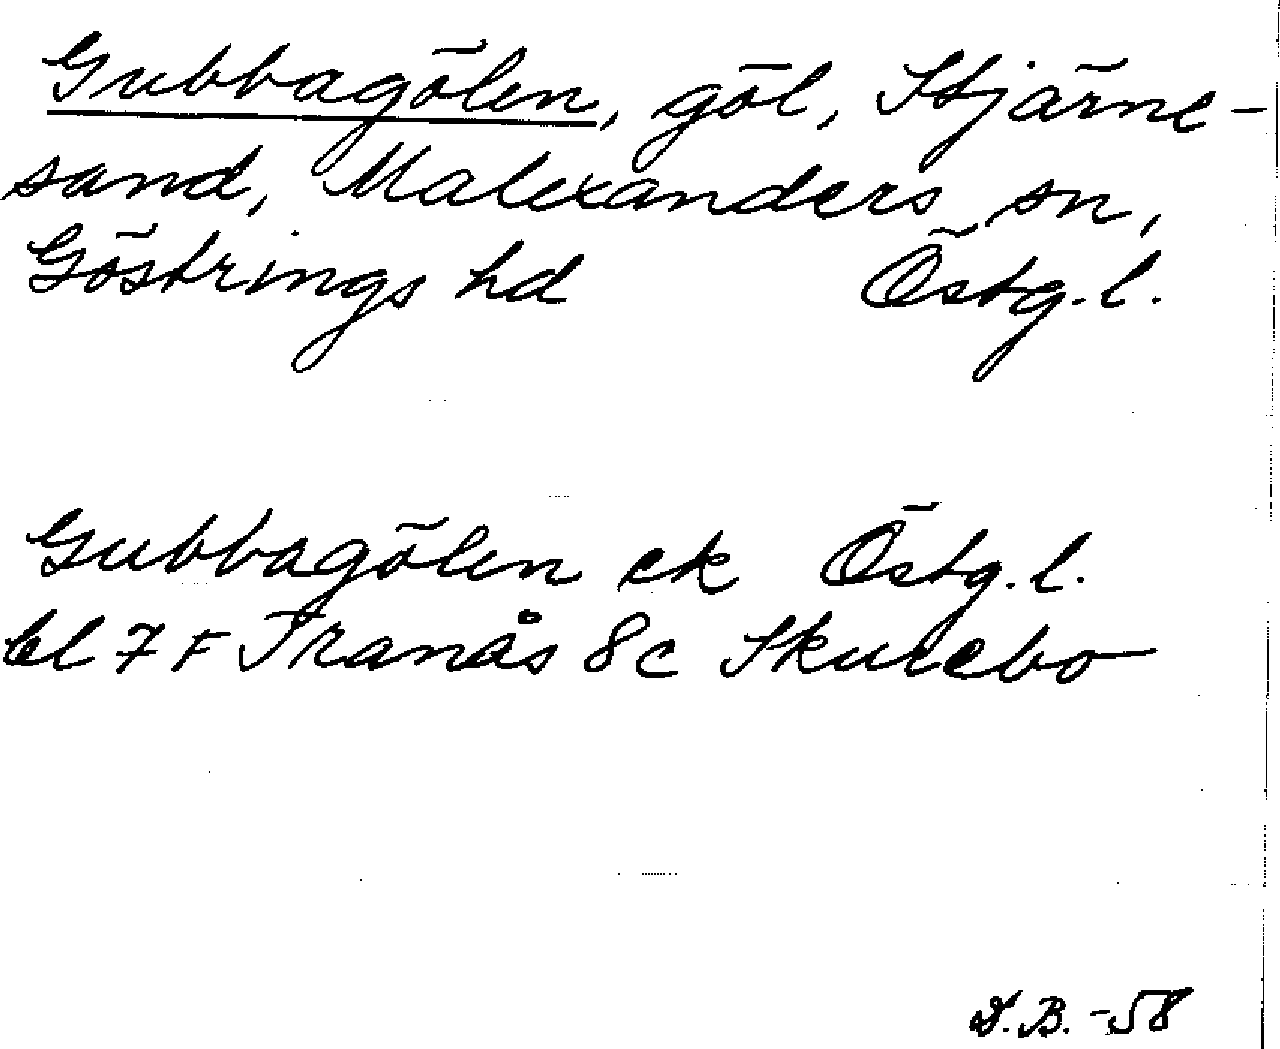 Gubbagölen, göl, Stjärne-
sand, Malexanders sn,
Göstrings hd Östg.l.
Gubbagölen ek Östg.l.
bl 7F Tranås 8c Skurebo
D.B. -58